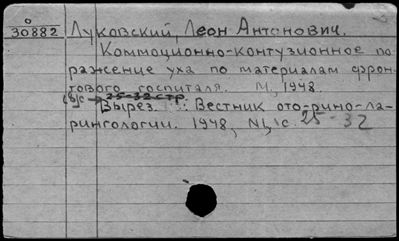 О
30882
Луковский, Леон Антонович.
Коммоционно-контузионное по
ражение уха по материалам фрон-
тового госпиталя. М, 1948.
25-32 стр.
Вырез. Вестник ото-рино-ла-
рингологии. 1948, №1, с. 25-32